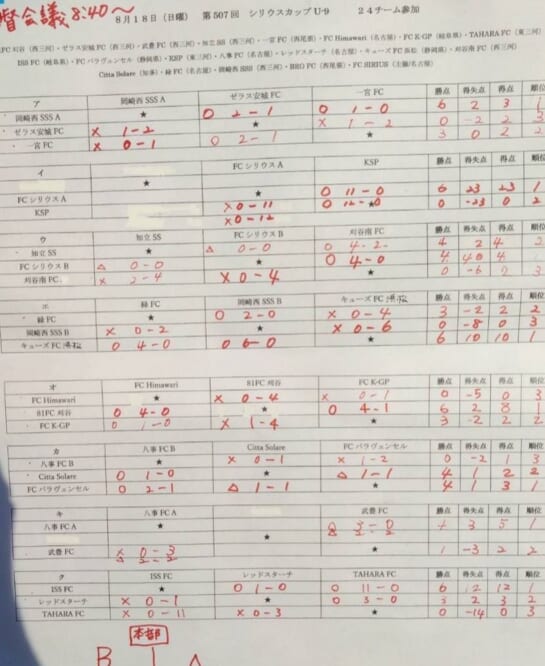 督会議 8:40〜
8月18日（日曜） 第507回 シリウスカップU-9 24チーム参加
FC 刈谷（西三河）・ゼラス安城FC（西三河）・武豊FC（西三河）・知立SS（西三河）・一宮FC（西尾張）・FC Himawari（名古屋）・FC K-GP（岐阜県）・TAHARA FC（東三河）
ISS FC（岐阜県）・FC パラヴェンセル（静岡県）・KSP（東三河）・八事FC（名古屋）・レッドスターチ（名古屋）・キューズFC 浜松（静岡県）・刈谷南FC（西三河）
Citta Solare（知多）・緑FC（名古屋）・岡崎西SSS（西三河）・BRO FC（西尾張）・FC SIRIUS（主催/名古屋）
ア 岡崎西 SSS A ゼラス安城 FC 一宮 FC 勝点 得失点 得点 順位
岡崎西 SSS A ★ O 2-1 O 1-0 6 2 3 1
ゼラス安城 FC × 1-2 ★ × 1-2 0 -2 2 3
一宮 FC × 0-1 O 2-1 ★ 3 0 2 2
イ FC シリウス A KSP 勝点 得失点 得点 順位
★
FC シリウス A ★ O 11-0 6 23 23 1
KSP × 0-11 O 12-0 ★ 0 -23 0 2
× 0-12
ウ 知立 SS FC シリウス B 刈谷南 FC 勝点 得失点 得点 順位
知立 SS ★ △ 0-0 O 4-2 4 2 4 2
FC シリウス B △ 0-0 ★ O 4-0 4 4 4
刈谷南 FC × 2-4 × 0-4 ★ 0 -6 2 3
エ 緑 FC 岡崎西 SSS B キューズ FC 浜松 勝点 得失点 得点 順位
緑 FC ★ O 2-0 × 0-4 3 -2 2 2
岡崎西 SSS B × 0-2 ★ × 0-6 0 -8 0 3
キューズ FC 浜松 O 4-0 O 6-0 ★ 6 10 10 1
オ FC Himawari 81FC 刈谷 FC K-GP 勝点 得失点 得点 順位
FC Himawari ★ × 0-4 × 0-1 0 -5 0 3
81FC 刈谷 O 4-0 ★ O 4-1 6 2 8 1
FC K-GP O 1-0 × 1-4 ★ 3 -2 2 2
カ 八事 FC B Citta Solare FC パラヴェンセル 勝点 得失点 得点 順位
八事 FC B ★ × 0-1 × 1-2 0 -2 1 3
Citta Solare O 1-0 ★ △ 1-1 4 1 2 2
FC パラヴェンセル O 2-1 △ 1-1 ★ 4 1 3 1
キ 八事 FC A 武豊 FC 勝点 得失点 得点 順位
八事 FC A ★ O 3-0 4 3 5 1
△ 2-2
★
武豊 FC × 0-3 ★ 1 -3 2 2
△ 2-2
ク ISS FC レッドスターチ TAHARA FC 勝点 得失点 得点 順位
ISS FC ★ O 1-0 O 11-0 6 12 12 1
レッドスターチ × 0-1 ★ O 3-0 3 2 3 2
TAHARA FC × 0-11 × 0-3 ★ 0 -14 0 3
本部
B A